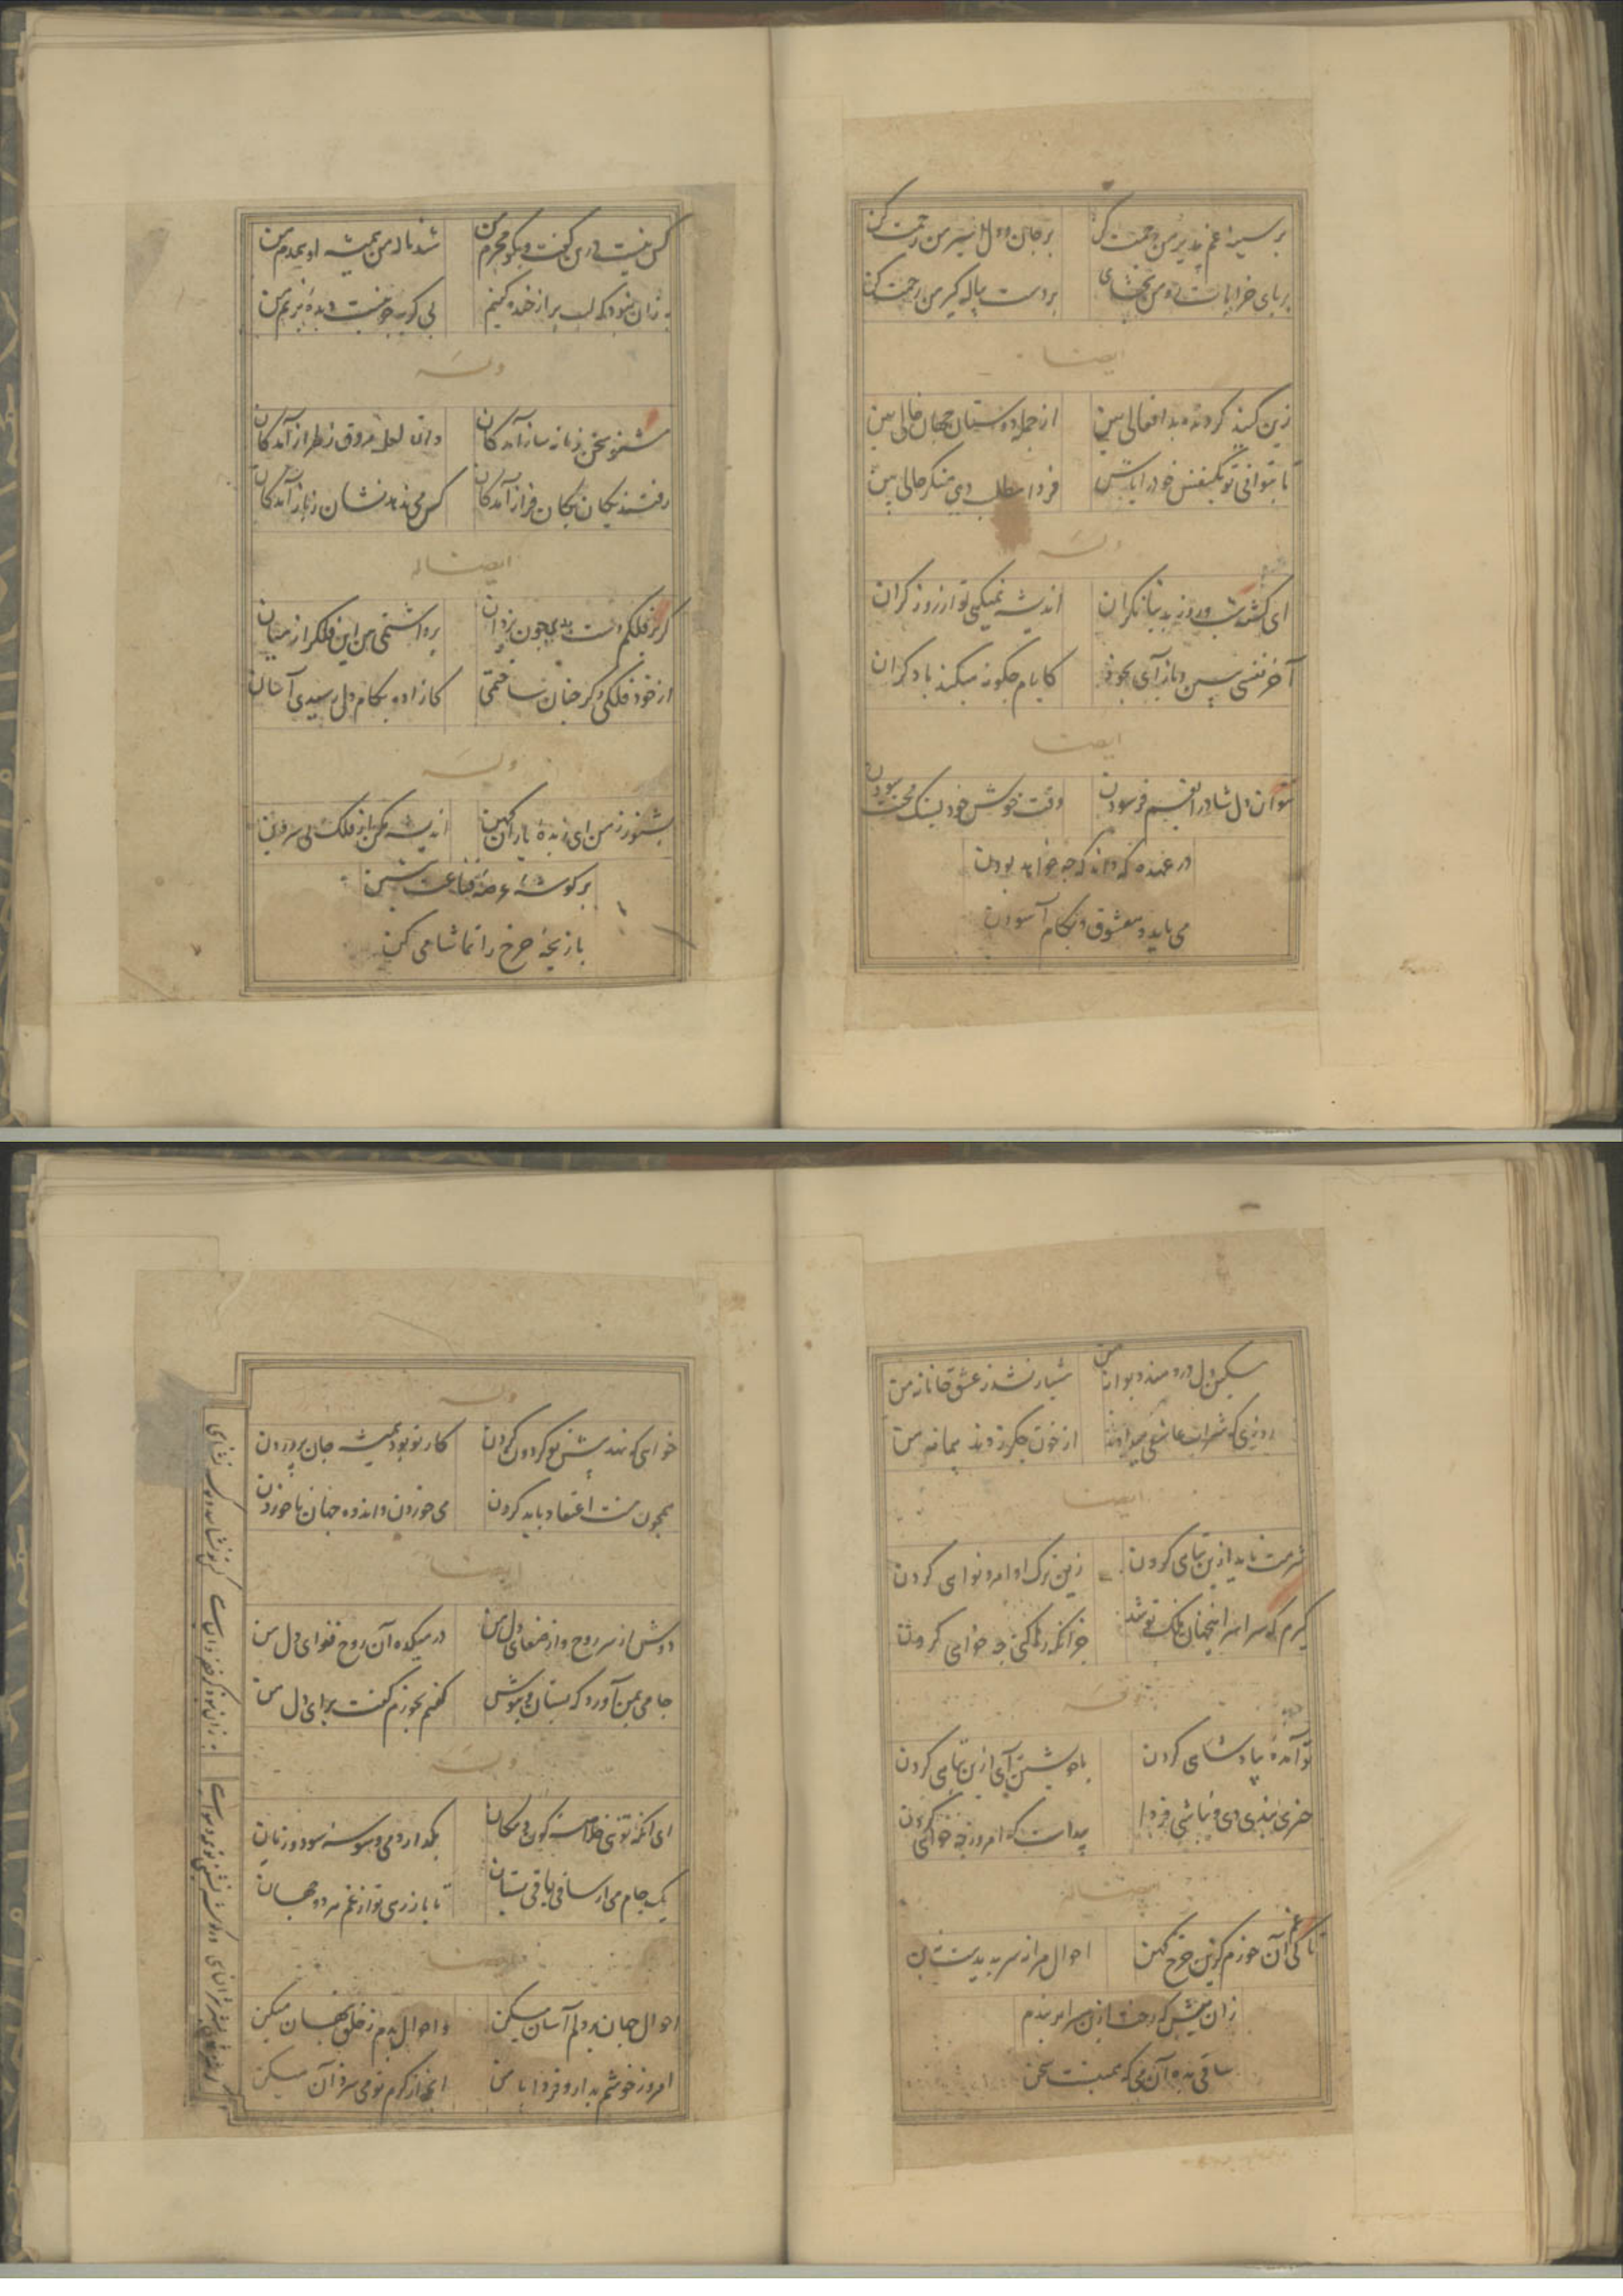 بر سینهٔ غم پذیر من رحمت کن بر جان و دل اسیر من رحمت کن
بر پای خرابات رو من بخشای بر دست پیاله گیر من رحمت کن
ایضا
زین گنبد گردنده بد افعالی بین از جمله دوستان جهان خالی بین
تا بتوانی تو یکنفس خود را باش فردا مطلب دی منگر حالی بین
وله
ای گشته شب و روز بدنیا نگران اندیشه نمیکنی تو از روز گران
آخر نفسی ببین و باز آی بخود کایام چگونه میکند با دگران
ایضا
نتوان دل شاد را بغم فرسودن وقت خوش خود بسنگ محنت سودن
در غیب که داند که چه خواهد بودن
می باید و معشوق و بکام آسودن
کس نیست درین گفت و بگو محرم من شد ناله من همیشه او همدم من
زان نبود که لب پر از خنده کنیم بی گریه دیده پر نم من
وله
مشنو سخن زمانه ساز آمدگان وان لعل مروق ز طراز آمدگان
رفتند یکان یکان فراز آمدگان کس می ندهد نشان ز باز آمدگان
ایضا له
گر بر فلکم دست بدی چون یزدان برداشتمی من این فلک را ز میان
از خود فلکی دگر چنان ساختمی کازاده بکام دل رسیدی آسان
وله
بشنو ز من ای زبدهٔ یاران کهن اندیشه مکن از فلک بی سر و بن
بر گوشهٔ عرصهٔ قناعت بنشین
بازیچهٔ چرخ را تماشا می کن
مسکین دل دردمند دیوانهٔ من هشیار نشد ز عشق جانانهٔ من
روزی که شراب عاشقی میدادند از خون جگر زدند پیمانهٔ من
ایضا
شرمت ناید ازین تباهی کردن زین ترک اوامر و نواهی کردن
گیرم که سراسر اینجهان ملک تو شد جز آنکه رها کنی چه خواهی کردن
وله
تو آمدهٔ بپادشاهی کردن با خویشتن آی ازین تباهی کردن
چیزی نبدی دی و نباشی فردا پیداست که امروز چه خواهی کردن
ایضا له
تا کی غم آن خورم کزین چرخ کهن احوال مرا نه سر پدیدست نه بن
زان پیش که رخت ازین سرا بر بندم
ساقی بده آن می که همینست سخن
وله
خواهی که نهد پیش تو گردون گردن کار تو بود همیشه جان پروردن
همچون منت اعتقاد باید کردن می خوردن و اندوه جهان نا خوردن
ایضا
دوش از سر روح و از صفای دل من در میکده آن روح فزای دل من
جامی بمن آورد که بستان و بنوش گفتم نخورم گفت برای دل من
وله
ای آنکه توئی خلاصه کون و مکان بگذار دمی وسوسه سود و زیان
یک جام می از ساقی باقی بستان تا باز رهی تو از غم هر دو جهان
ایضا
احوال جهان بر دلم آسان میکن و احوال بدم ز خلق پنهان میکن
امروز خوشم بدار و فردا با من آنچ از کرم تو می سزد آن میکن